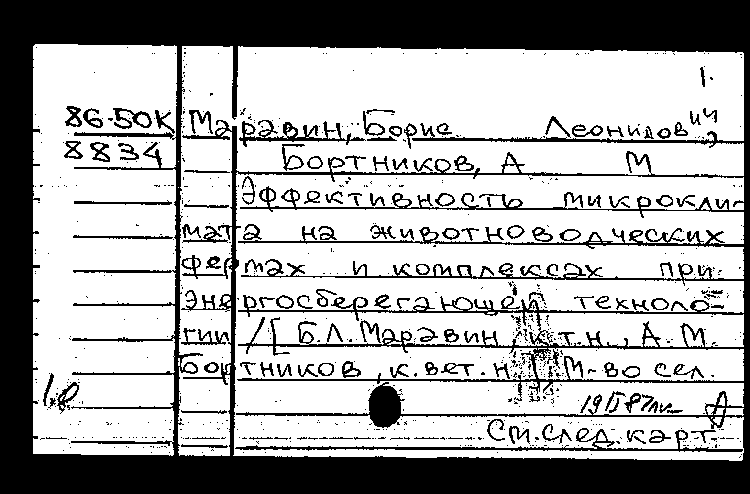 1.
86-50К Маравин, Борис Леонидович
8834 Бортников, А М
Эффективность микрокли-
мата на животноводческих
фермах и комплексах при
энергосберегающей техноло-
гии /[Б.Л. Маравин, к.т.н., А.М.
Бортников, к.вет.н.]; М-во сел.
См. след. карт.